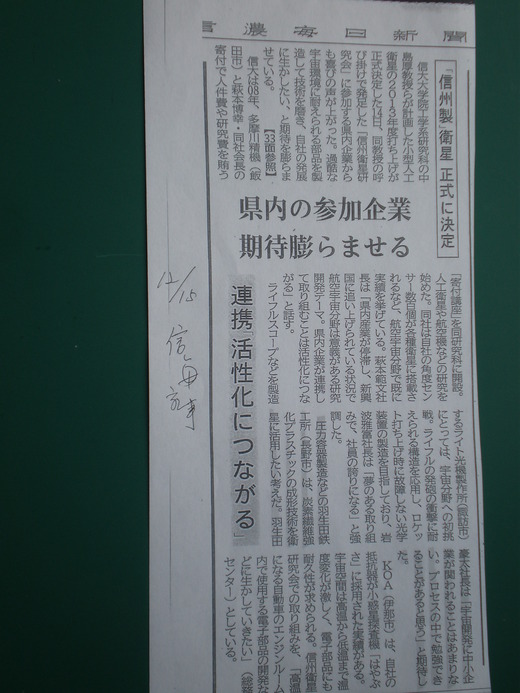 信濃毎日新聞
「信州製」衛星 正式に決定
県内の参加企業
期待膨らませる
連携「活性化につながる」
信大大学院工学系研究科の中
島厚教授らが計画した小型人工
衛星の2013年度打ち上げが
正式決定した14日、同教授の呼
び掛けで発足した「信州衛星研
究会」に参加する県内企業から
も喜びの声が上がった。過酷な
宇宙環境に耐えられる部品を製
造して技術を磨き、自社の発展
に生かしたい、と期待を膨らま
せている。【33面参照】
信大は08年、多摩川精機(飯
田市)と萩本博幸・同社会長の
寄付で人件費や研究費を賄う
「寄付講座」を同研究科に開設。
人工衛星や航空機などの研究を
始めた。同社は自社の角度セン
サー数百個が各種衛星に搭載さ
れるなど、航空宇宙分野で既に
実績を挙げている。萩本範文社
長は「県内産業が停滞し、新興
国に追い上げられている状況で
航空宇宙分野は意義がある研究
開発テーマ。県内企業が連携し
て取り組むことは活性化につな
がる」と話す。
ライフルスコープなどを製造
するライト光機製作所(諏訪市)
にとっては、宇宙分野への初挑
戦。ライフルの発砲の衝撃に耐
えられる構造を応用し、ロケッ
ト打ち上げ時に故障しない光学
装置の製造を目指しており、岩
波雅富社長は「夢のある取り組
みで、社員の誇りになる」と強
調した。
圧力容器製造などの羽生田鉄
工所(長野市)は、炭素繊維強
化プラスチックの成形技術を衛
星に活用したい考えだ。羽生田
豪太社長は「宇宙開発に中小企
業が関われることはあまりな
い。プロセスの中で勉強でき
ることがあると思う」と期待し
た。
KOA(伊那市)は、自社の
抵抗器が小惑星探査機「はやぶ
さ」に採用された実績がある。
宇宙空間は高温から低温まで温
度変化が激しく、電子部品にも
耐久性が求められる。信州衛星
研究会での取り組みを、「高温
になる自動車のエンジンルーム
内で使用する電子部品の開発な
どに生かしていきたい」(総務
センター)としている。
12/15 信毎